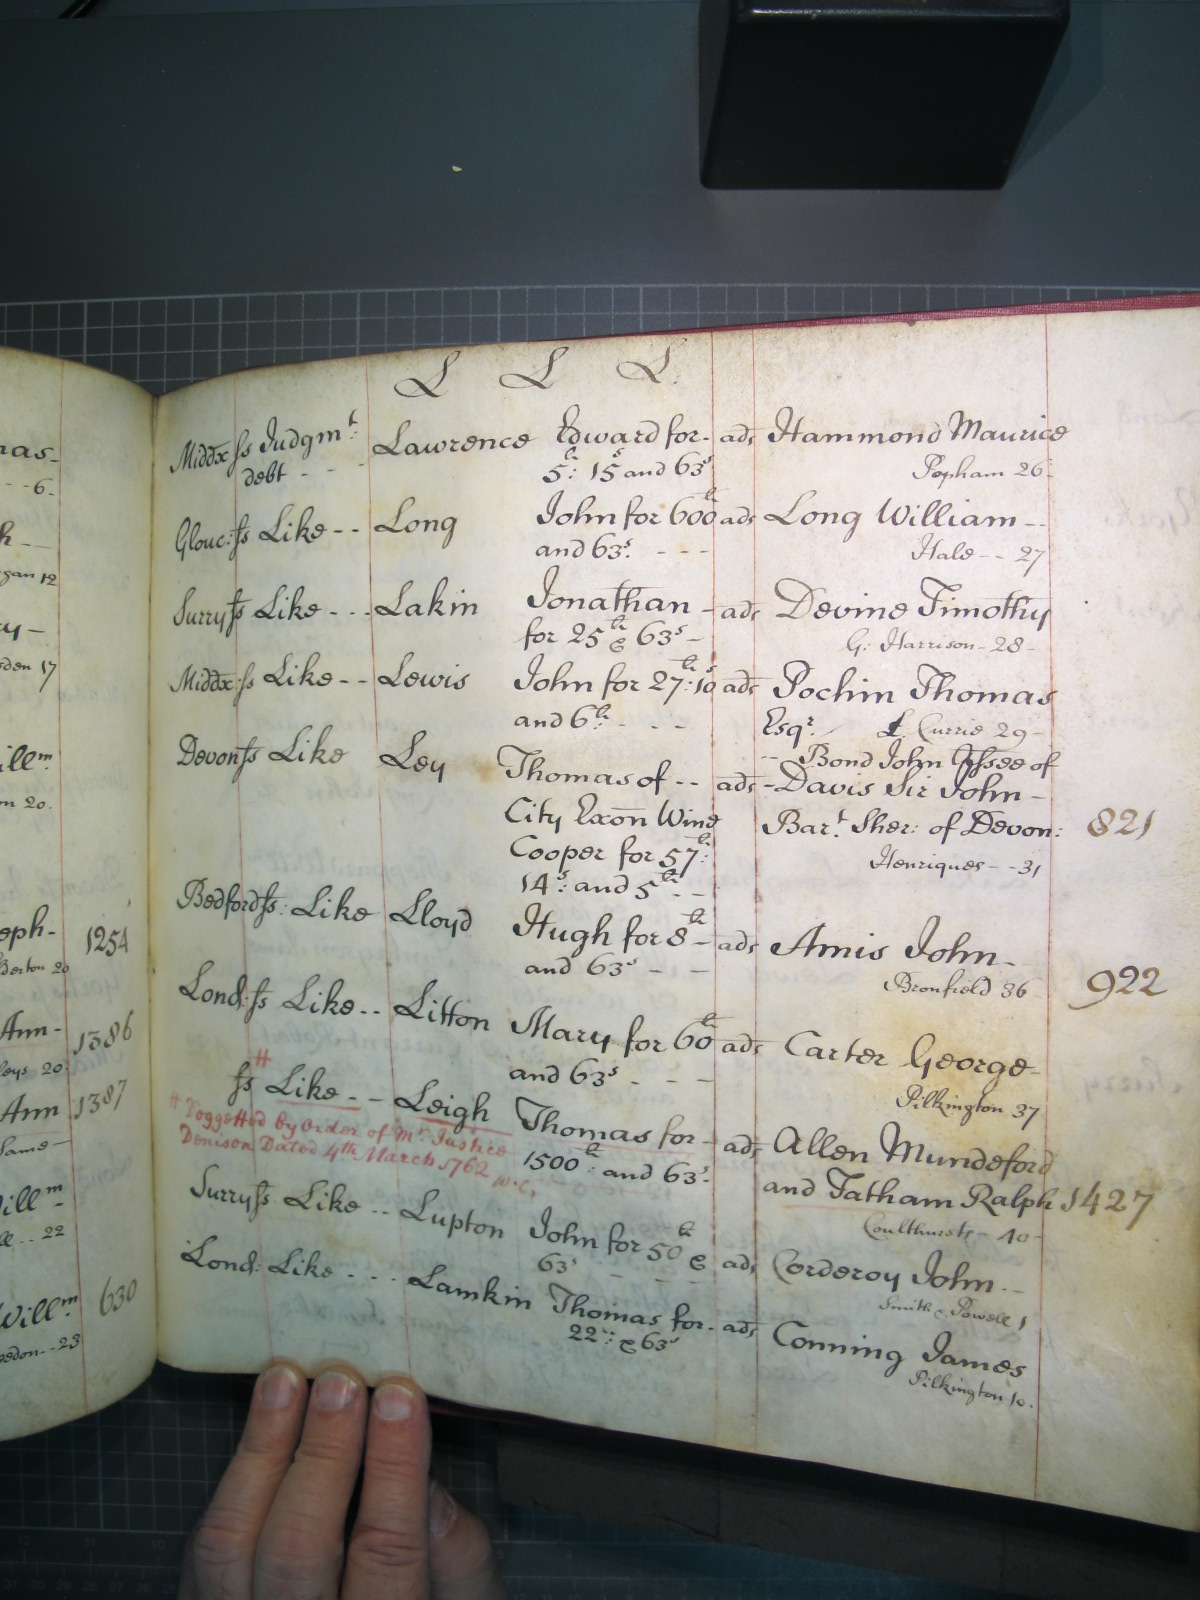 L L L
Middx ſs Judgmt: Lawrence Edward for - ads Hammond Maurice
debt - - - 5li: 15s and 63s Popham 26
Glouc: ſs Like - - Long John for 600li ads Long William - -
and 63s. - - - Hale - - 27
Surry ſs Like - - - Lakin Jonathan - ads Devine Timothy
for 25li & 63s - G: Harrison - 28 -
Middx: ſs Like - - Lewis John for 27li:10s ads Pochin Thomas
and 6li: - - - Esqr. Currie 29 -
- - Bond John Assee of
Devon ſs Like Ley Thomas of - - ads - Davis Sir John -
City Exōn Wine Bart. Sher: of Devon: 821
Cooper for 57li: Henriques - - 31
14s: and 5li - -
Bedford ſs: Like Lloyd Hugh for 8li - ads Amis John -
and 63s - - Bronfield 36 922
Lond: ſs Like - - Litton Mary for 60li ads Carter George -
and 63s - - - Pilkington 37
# ſs Like - - Leigh Thomas for - ads Allen Mundeford
1500li: and 63s: and Tatham Ralph 1427
# Toggetted by Order of Mr. Justice
Denison Dated 4th March 1762 W.C, Coulthurst - 40 -
Surry ſs Like - - Lupton John for 50li & ads Corderoy John - -
63s - - - Smith & Powell 1
Lond: Like - - - Lamkin Thomas for - ads Conning James
22li: & 63s Pilkington 10.
mas -
- - 6.
h - -
gan 12
cy -
sden 17
illm
m 20.
eph - 1254
derton 20
Ann - 1386
leys 20
Ann 1387
Same -
illm
ll - - 22
Willm: 630
edon - - 23